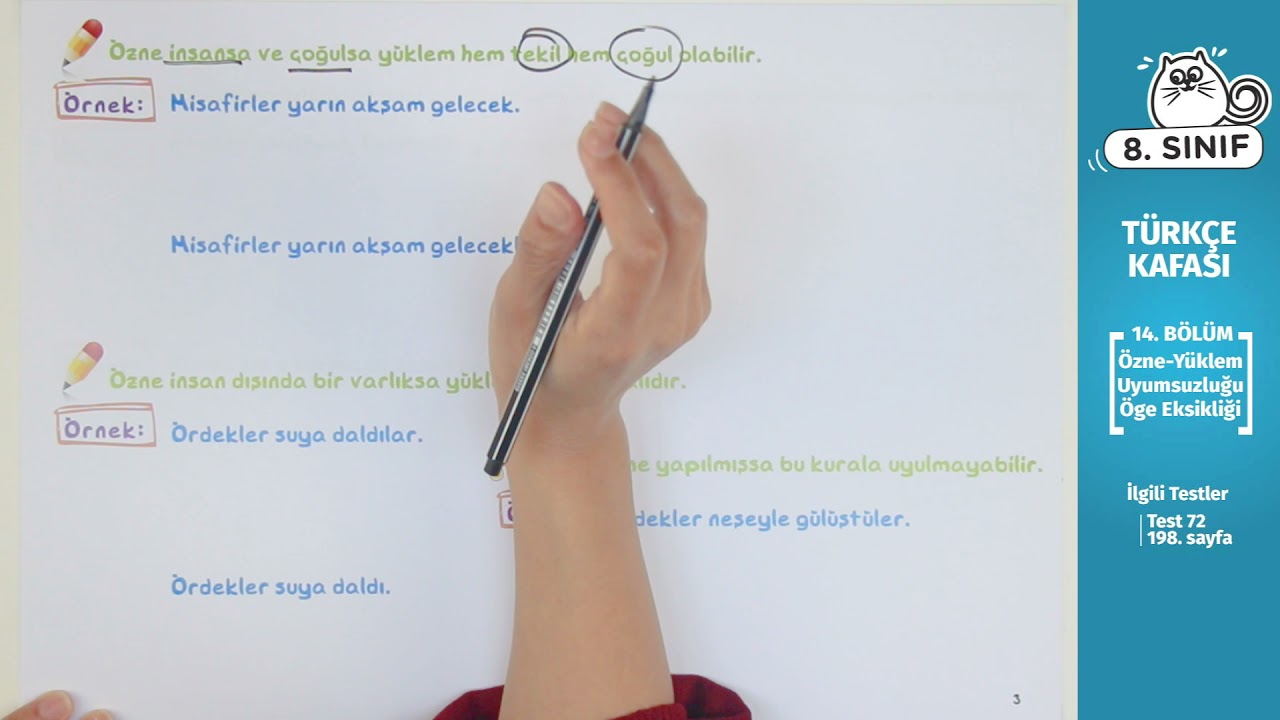 Özne insansa ve çoğulsa yüklem hem tekil hem çoğul olabilir.
Örnek: Misafirler yarın akşam gelecek.
Misafirler yarın akşam
Özne insan dışında bir varlıksa
Örnek: Ördekler suya daldılar.
yapılmışsa bu kurala uyulmayabilir.
neşeyle gülüştüler.
Ördekler suya daldı.
3
8. SINIF
TÜRKÇE
KAFASI
14. BÖLÜM
Özne-Yüklem
Uyumsuzluğu
Öge Eksikliği
İlgili Testler
Test 72
198. sayfa